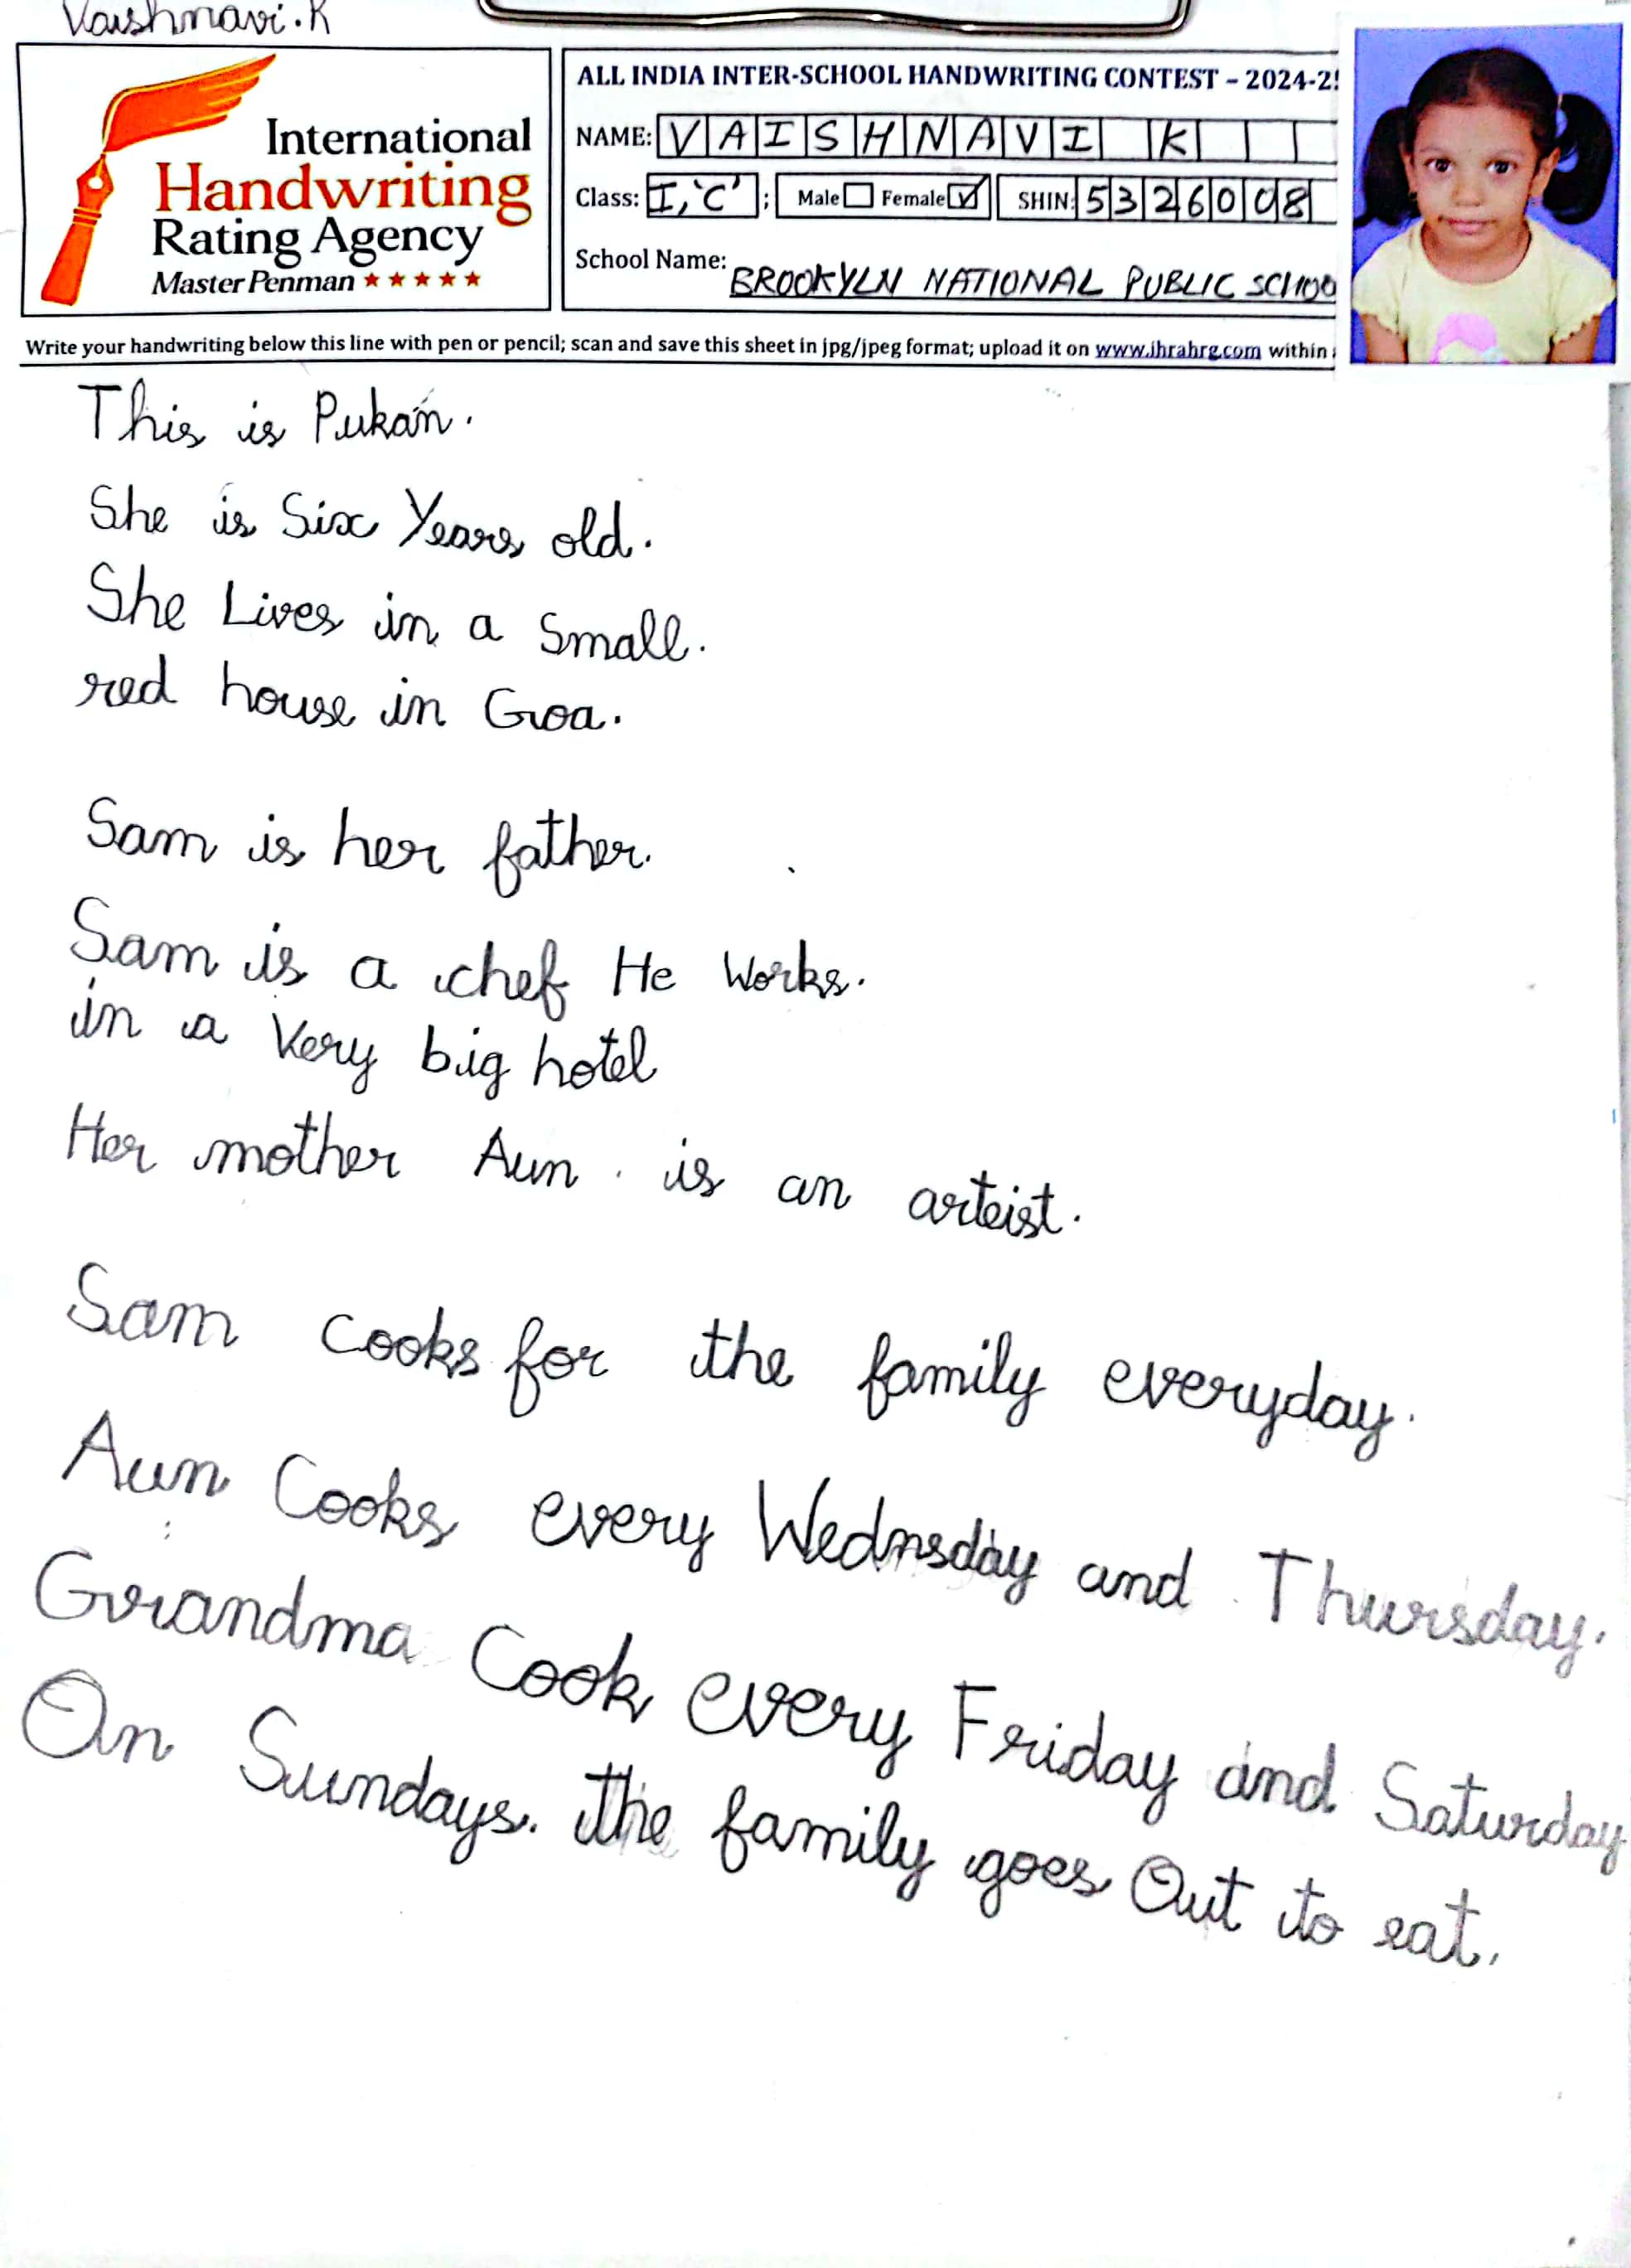 Vaishnavi.K
International
Handwriting
Rating Agency
Master Penman ★★★★★
ALL INDIA INTER-SCHOOL HANDWRITING CONTEST – 2024-2
NAME: VAISHNAVI K
Class: I, 'C' ; Male Female ✓ SHIN: 5326008
School Name: BROOKYLN NATIONAL PUBLIC SCHOO
Write your handwriting below this line with pen or pencil; scan and save this sheet in jpg/jpeg format; upload it on www.ihrahrg.com within
This is Pukan.
She is Six Years old.
She Lives in a Small.
red house in Goa.
Sam is her father.
Sam is a chef He Works.
in a Very big hotel
Her mother Aun . is an arteist.
Sam cooks for the family everyday.
Aun Cooks every Wednsday and Thursday.
Grandma Cook every Friday and Saturday
On Sundays. the family goes Out to eat.